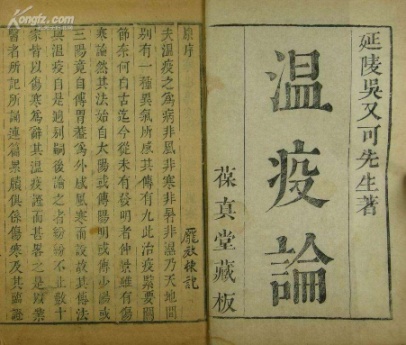 延陵吳又可先生著
溫疫論
葆真堂藏板
原序
夫溫疫之為病非風非寒非暑非濕乃天地間
別有一種異氣所感其傳有九此治疫緊要關
節奈何自古迄今從未有發明者仲景雖有傷
寒論然其法始自太陽或傳陽明或傳少陽或
三陽竟自傳胃蓋為外感風寒而設故其傳法
與溫疫自是迥別嗣後論之者紛紛不止數十
家皆以傷寒為辭其溫疫證而甚畧之是以業
醫者所記所誦連篇累牘俱係傷寒及其
kongfz.com